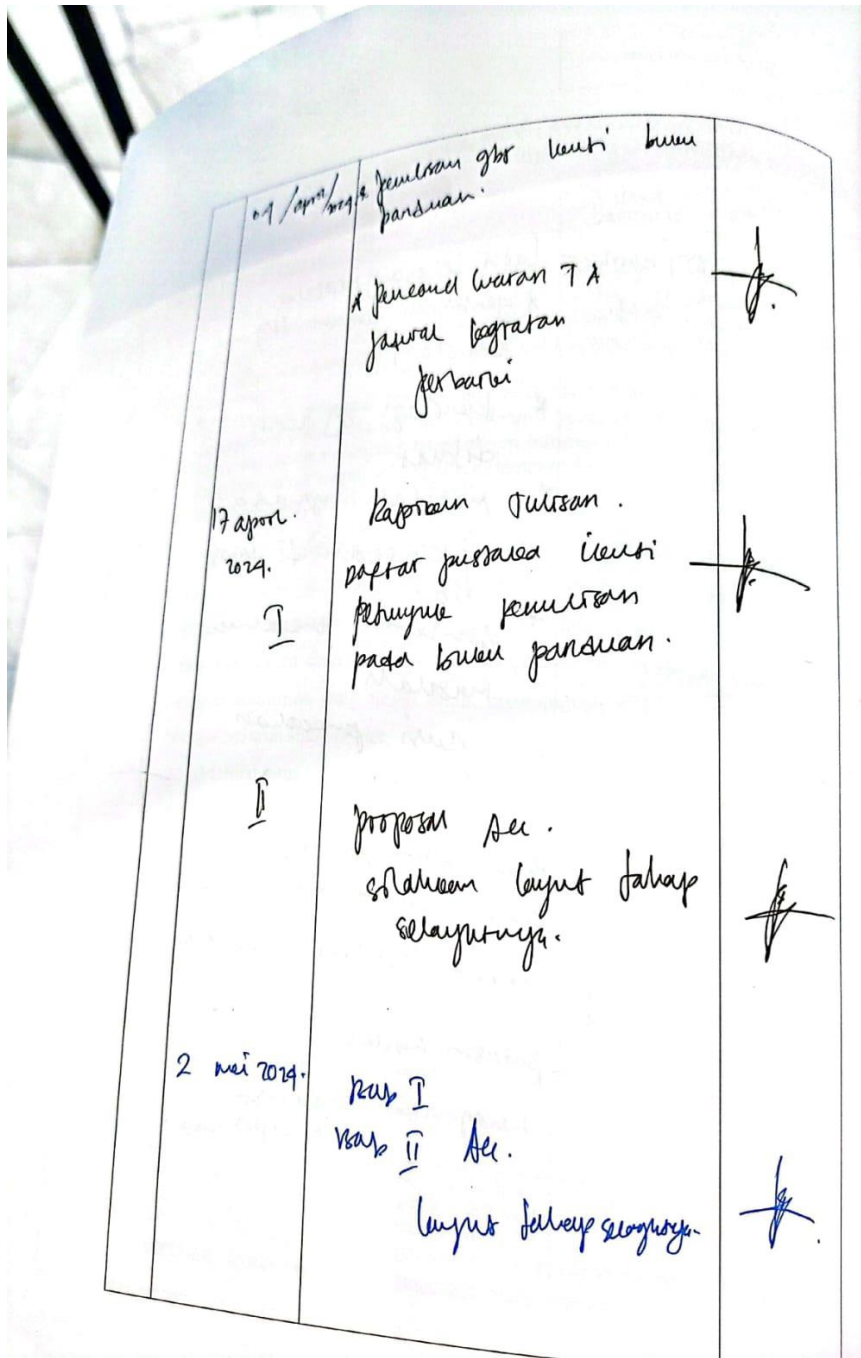 04/april/2024 * penulisan gbr ikuti buku
panduan.
* TA
jadwal kegiatan
perbaiki
17 april. Rapikan tulisan.
2024. Daftar pustaka ikuti
I petunjuk penulisan
pada buku panduan.
II proposal Acc.
silahkan lanjut tahap
selanjutnya.
2 mei 2024. Bab I
Bab II Acc.
lanjut tahap selanjutnya.